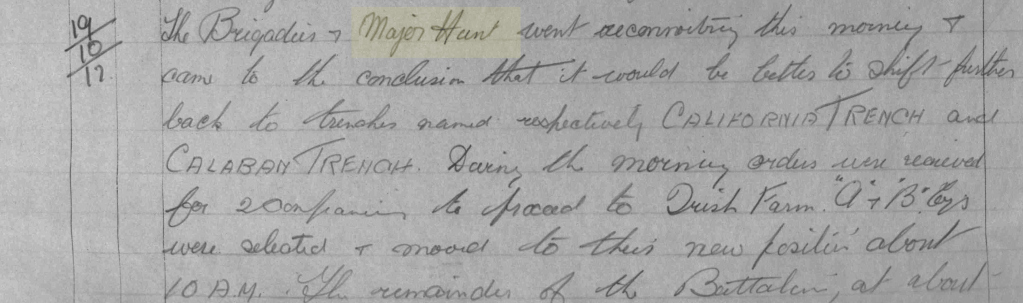 19/10/17 The Brigadier & Major Hunt went reconnoitring this morning &
came to the conclusion that it would be better to shift further
back to trenches named respectively CALIFORNIA TRENCH and
CALABAN TRENCH. During the morning orders were received
for 2 Companies to proceed to Irish Farm. "A" & "B" Coys
were selected & moved to their new position about
10 A.M. The remainder of the Battalion, at about